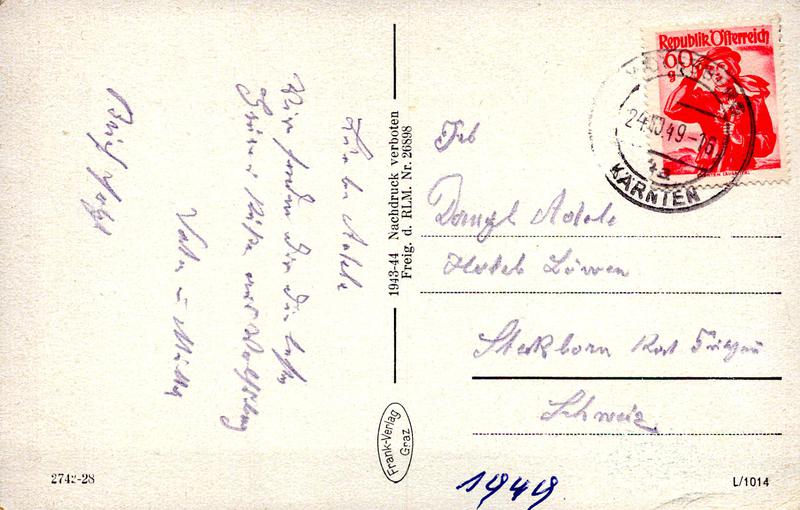 Liebe Adele
Wir senden Dir die besten
Grüße
Vater u Mutter
Brief folgt
1943-44 Nachdruck verboten
Freig. d. RLM. Nr. 26898
Frank-Verlag
Graz
2742-28
Republik Österreich
60
g
24.XI.49-16
KÄRNTEN
Frl
Dangl Adele
Hotel Löwen
Steckborn Kat
Schweiz
1949
L/1014